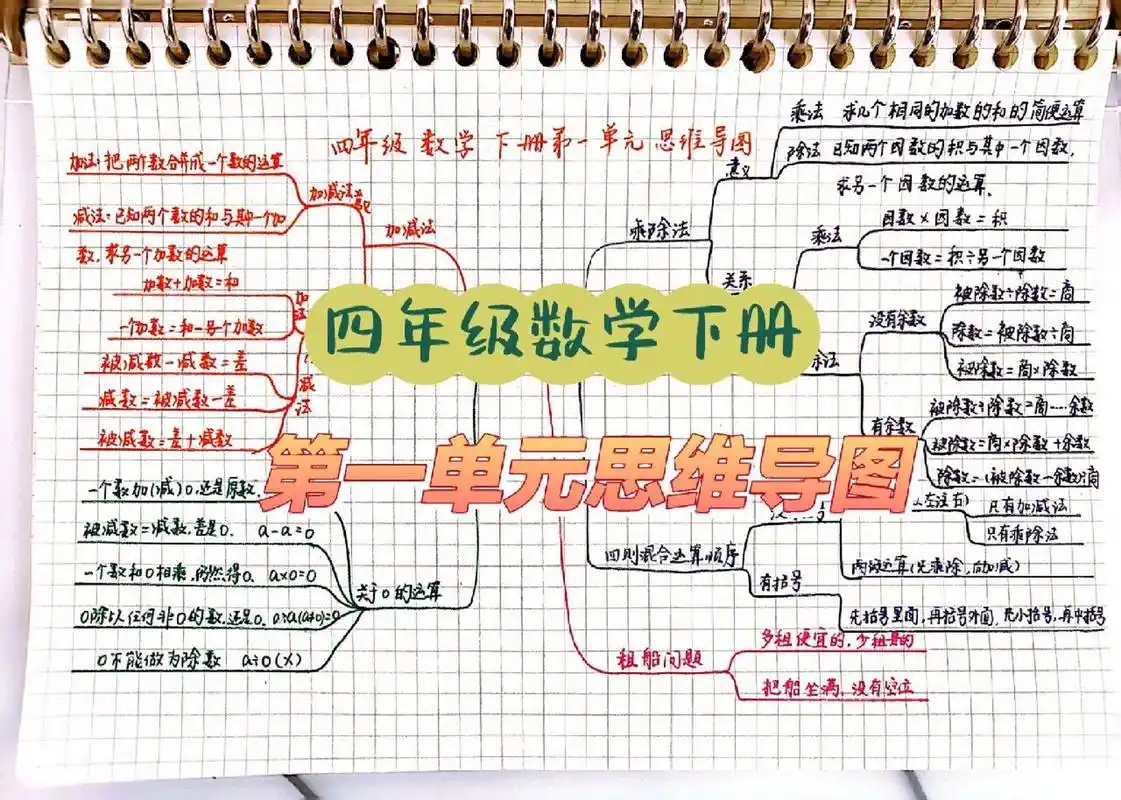 四年级数学下册第一单元思维导图
四年级数学下册
第一单元思维导图
加减法
加减法意义
加法:把两个数合并成一个数的运算
减法:已知两个数的和与其中一个加
数,求另一个加数的运算
加法
加数+加数=和
一个加数=和-另一个加数
减法
被减数-减数=差
减数=被减数-差
被减数=差+减数
关于0的运算
一个数加(减)0,还是原数
被减数=减数,差是0. a-a=0
一个数和0相乘,仍然得0. a×0=0
0除以任何非0的数,还是0. 0÷a(a≠0)=0
0不能做为除数 a÷0(×)
乘除法
意义
乘法 求几个相同的加数的和的简便运算
除法 已知两个因数的积与其中一个因数,
求另一个因数的运算.
关系
乘法
因数×因数=积
一个因数=积÷另一个因数
除法
没有余数
被除数÷除数=商
除数=被除数÷商
被除数=商×除数
有余数
被除数÷除数=商……余数
被除数=商×除数+余数
除数=(被除数-余数)÷商
四则混合运算顺序
左 右)
只有加减法
只有乘除法
两级运算(先乘除,后加减)
有括号
先括号里面,再括号外面,先小括号,再中括号
租船问题
多租便宜的,少租贵的
把船坐满,没有空位